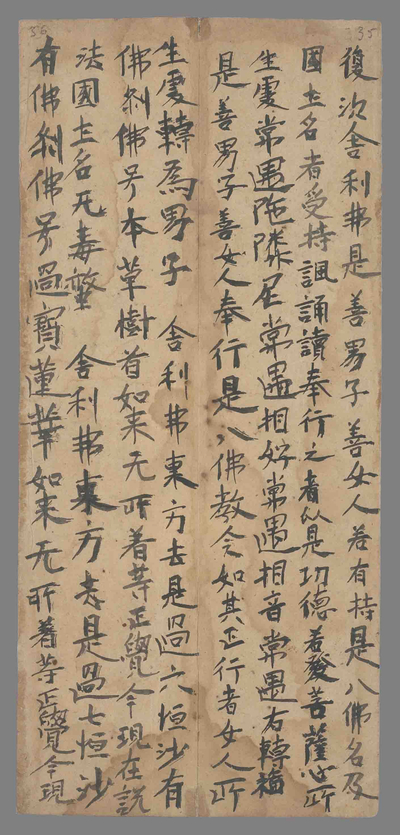 復次舍利弗是善男子善女人若有持是八佛名及
國土名者受持諷誦讀奉行之者以是功德若發菩薩心所
生處常遇陁隣尼常遇相好常遇相音常遇右轉福
是善男子善女人奉行是八佛教令如其正行者女人所
生處轉為男子 舍利弗東方去是過六恒沙有
佛刹佛号本草樹首如来无所着等正覺今現在說
法國土名无毒螫 舍利弗東方去是過七恒沙
有佛刹佛号過寶蓮華如来无所着等正覺今現
335
56